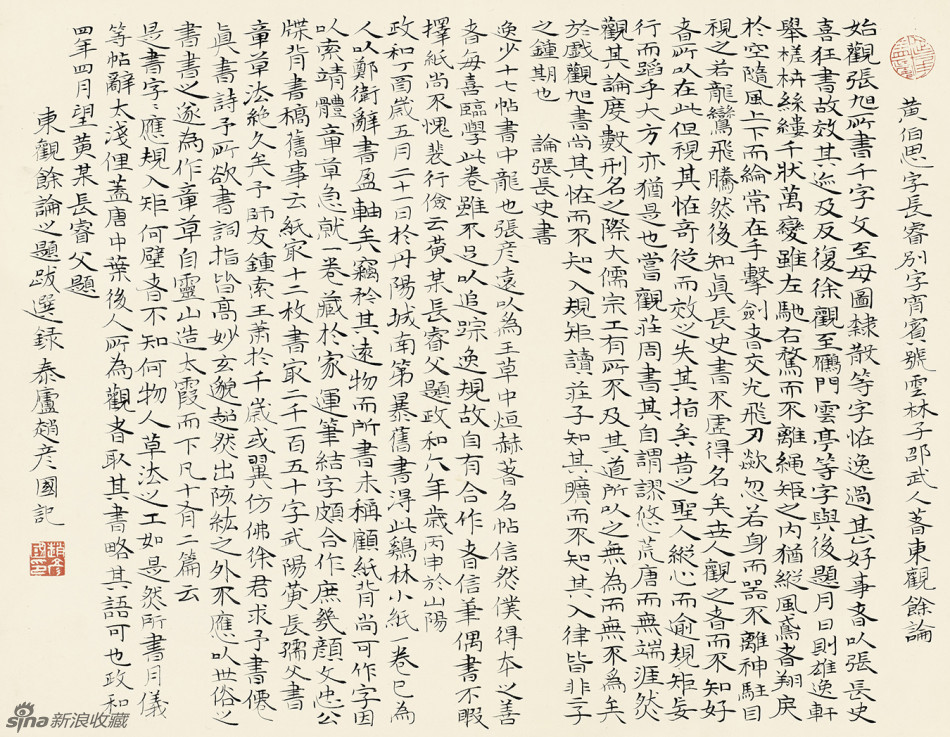 黄伯思字長睿別字宵賓號雲林子邵武人著東觀餘論
始觀張旭所書千字文至母圖隸散等字怪逸過甚好事者以張長史
喜狂書故效其迹及反復徐觀至鴈門雲亭等字與後題月日則雄逸軒
舉槎枿絲縷千狀萬變雖左馳右鶩而不離繩矩之內猶縱風鳶者翔戾
於空隨風上下而綸常在手擊劍者交光飛刃歘忽若身而器不離神駐目
視之若龍鸞飛騰然後知真長史書不虛得名矣世人觀之者而不知好
者所以在此但視其怪奇從而效之失其指矣昔之聖人縱心而逾規矩妄
行而蹈乎大方亦猶是也嘗觀莊周書其自謂謬悠荒唐而無端涯然
觀其論度數刑名之際大儒宗工有所不及其道所以之無為而無不為矣
於戲觀旭書尚其怪而不知入規矩讀莊子知其曠而不知其入律皆非二子
之鍾期也　論張長史書
逸少十七帖書中龍也張彥遠以為王草中烜赫著名帖信然僕得本之善
者每喜臨學此卷雖不足以追踪逸規故自有合作者信筆偶書不暇
擇紙尚不愧裴行儉云黄某長睿父題政和八年歲丙申於山陽
政和丁酉歲五月二十一日於丹陽城南第暴舊書得此鷄林小紙一卷已為
人以鄭衛辭書盈軸矣竊矜其遠物而所書未稱顧紙背尚可作字因
以索靖體章草急就一卷藏於家運筆結字頗合作庶幾顏文忠公
牒背書槁舊事云紙家十二枚書家二千一百五十字武陽黄長孺父書
章草法絕久矣予師友鍾索王蕭於千歲或冀仿佛徐君求予書僊
真書詩予所欲書詞指皆高妙玄邈超然出陔紘之外不應以世俗之
書書之遂為作章草自靈山造太霞而下凡十有二篇云
是書字〻應規入矩何壁者不知何物人草法之工如是然所書月儀
等帖辭太淺俚蓋唐中葉後人所為觀者取其書略其語可也政和
四年四月望黄某長睿父題
東觀餘論之題跋選錄 泰廬趙彥國記
趙彥國印
sina新浪收藏